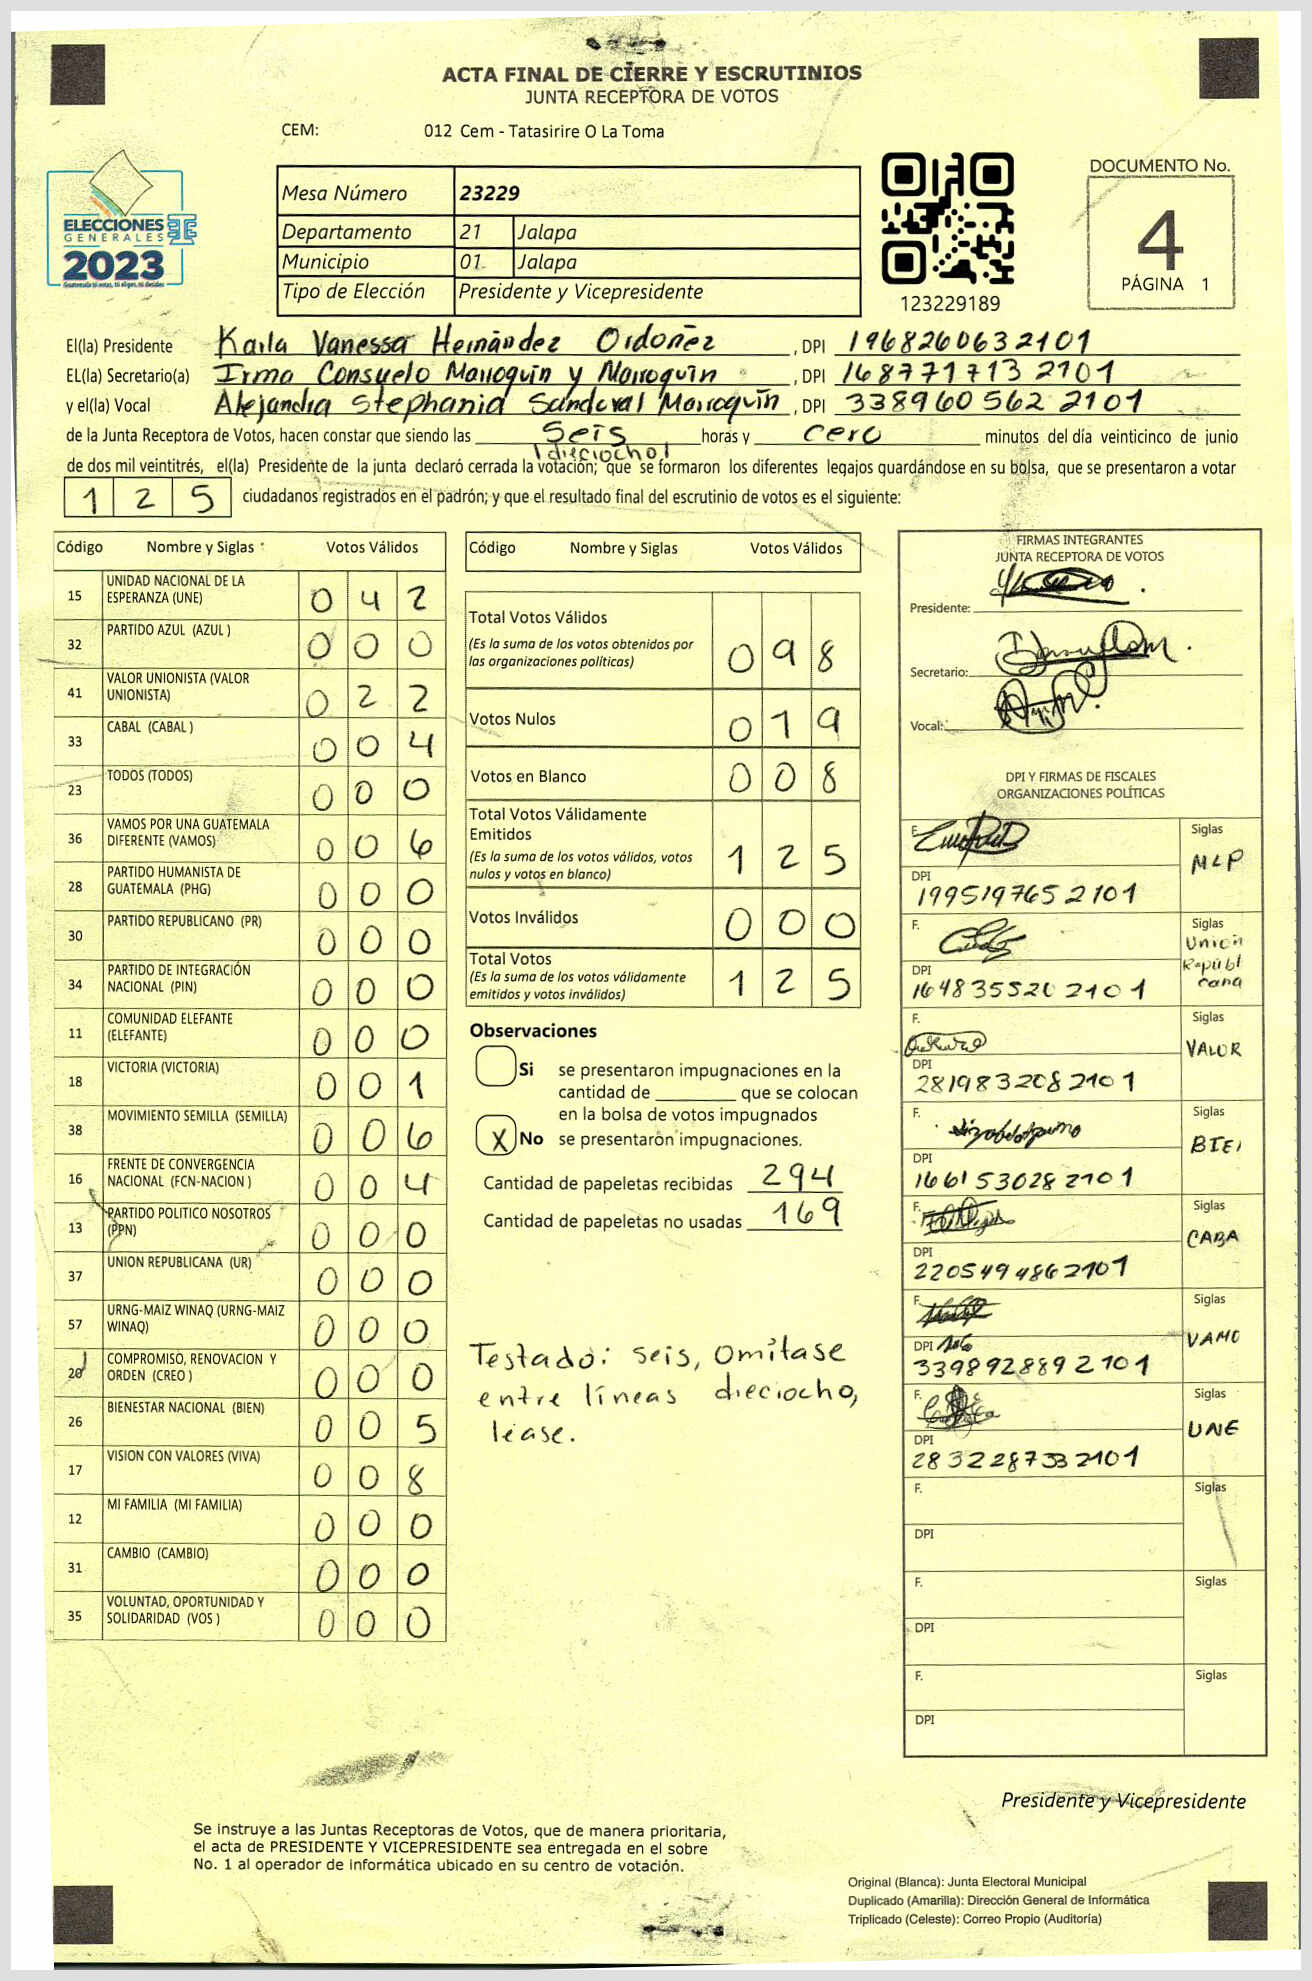 ACTA FINAL DE CIERRE Y ESCRUTINIOS
JUNTA RECEPTORA DE VOTOS
CEM: 012 Cem - Tatasirire O La Toma
ELECCIONES
GENERALES
2023
Guatemala tú votas, tú eliges, tú decides
Mesa Número 23229
Departamento 21 Jalapa
Municipio 01 Jalapa
Tipo de Elección Presidente y Vicepresidente
123229189
DOCUMENTO No.
4
PÁGINA 1
El(la) Presidente Karla Vanessa Hernández Ordoñez , DPI 1968260632101
EL(la) Secretario(a) Irma Consuelo Marroquín y Marroquín , DPI 1687717132101
y el(la) Vocal Alejandra Stephania Sandoval Marroquín , DPI 3389605622101
de la Junta Receptora de Votos, hacen constar que siendo las seis horas y cero minutos del día veinticinco de junio
dieciocho
de dos mil veintitrés, el(la) Presidente de la junta declaró cerrada la votación; que se formaron los diferentes legajos guardándose en su bolsa, que se presentaron a votar
125 ciudadanos registrados en el padrón; y que el resultado final del escrutinio de votos es el siguiente:
Código Nombre y Siglas Votos Válidos
15 UNIDAD NACIONAL DE LA ESPERANZA (UNE) 042
32 PARTIDO AZUL (AZUL ) 000
41 VALOR UNIONISTA (VALOR UNIONISTA) 022
33 CABAL (CABAL ) 004
23 TODOS (TODOS) 000
36 VAMOS POR UNA GUATEMALA DIFERENTE (VAMOS) 006
28 PARTIDO HUMANISTA DE GUATEMALA (PHG) 000
30 PARTIDO REPUBLICANO (PR) 000
34 PARTIDO DE INTEGRACIÓN NACIONAL (PIN) 000
11 COMUNIDAD ELEFANTE (ELEFANTE) 000
18 VICTORIA (VICTORIA) 001
38 MOVIMIENTO SEMILLA (SEMILLA) 006
16 FRENTE DE CONVERGENCIA NACIONAL (FCN-NACION ) 004
13 PARTIDO POLITICO NOSOTROS (PPN) 000
37 UNION REPUBLICANA (UR) 000
57 URNG-MAIZ WINAQ (URNG-MAIZ WINAQ) 000
20 COMPROMISO, RENOVACION Y ORDEN (CREO ) 000
26 BIENESTAR NACIONAL (BIEN) 005
17 VISION CON VALORES (VIVA) 008
12 MI FAMILIA (MI FAMILIA) 000
31 CAMBIO (CAMBIO) 000
35 VOLUNTAD, OPORTUNIDAD Y SOLIDARIDAD (VOS ) 000
Código Nombre y Siglas Votos Válidos
Total Votos Válidos 098
(Es la suma de los votos obtenidos por
las organizaciones políticas)
Votos Nulos 019
Votos en Blanco 008
Total Votos Válidamente
Emitidos 125
(Es la suma de los votos válidos, votos
nulos y votos en blanco)
Votos Inválidos 000
Total Votos 125
(Es la suma de los votos válidamente
emitidos y votos inválidos)
Observaciones
Si se presentaron impugnaciones en la
cantidad de ________ que se colocan
en la bolsa de votos impugnados
X No se presentaron impugnaciones.
Cantidad de papeletas recibidas 294
Cantidad de papeletas no usadas 169
Testado: seis, omítase
entre líneas dieciocho,
léase.
FIRMAS INTEGRANTES
JUNTA RECEPTORA DE VOTOS
Presidente:
Secretario:
Vocal:
DPI Y FIRMAS DE FISCALES
ORGANIZACIONES POLÍTICAS
F. Siglas
MLP
DPI
1995197652101
F. Siglas
Union
Republi
cana
DPI
1648355202101
F. Siglas
VALOR
DPI
2819832082101
F. Siglas
BIEN
DPI
1661530282101
F. Siglas
CABA
DPI
2205494862101
F. Siglas
VAMO
DPI
3398928892101
F. Siglas
UNE
DPI
2832287332101
F. Siglas
DPI
F. Siglas
DPI
F. Siglas
DPI
Presidente y Vicepresidente
Se instruye a las Juntas Receptoras de Votos, que de manera prioritaria,
el acta de PRESIDENTE Y VICEPRESIDENTE sea entregada en el sobre
No. 1 al operador de informática ubicado en su centro de votación.
Original (Blanca): Junta Electoral Municipal
Duplicado (Amarilla): Dirección General de Informática
Triplicado (Celeste): Correo Propio (Auditoría)